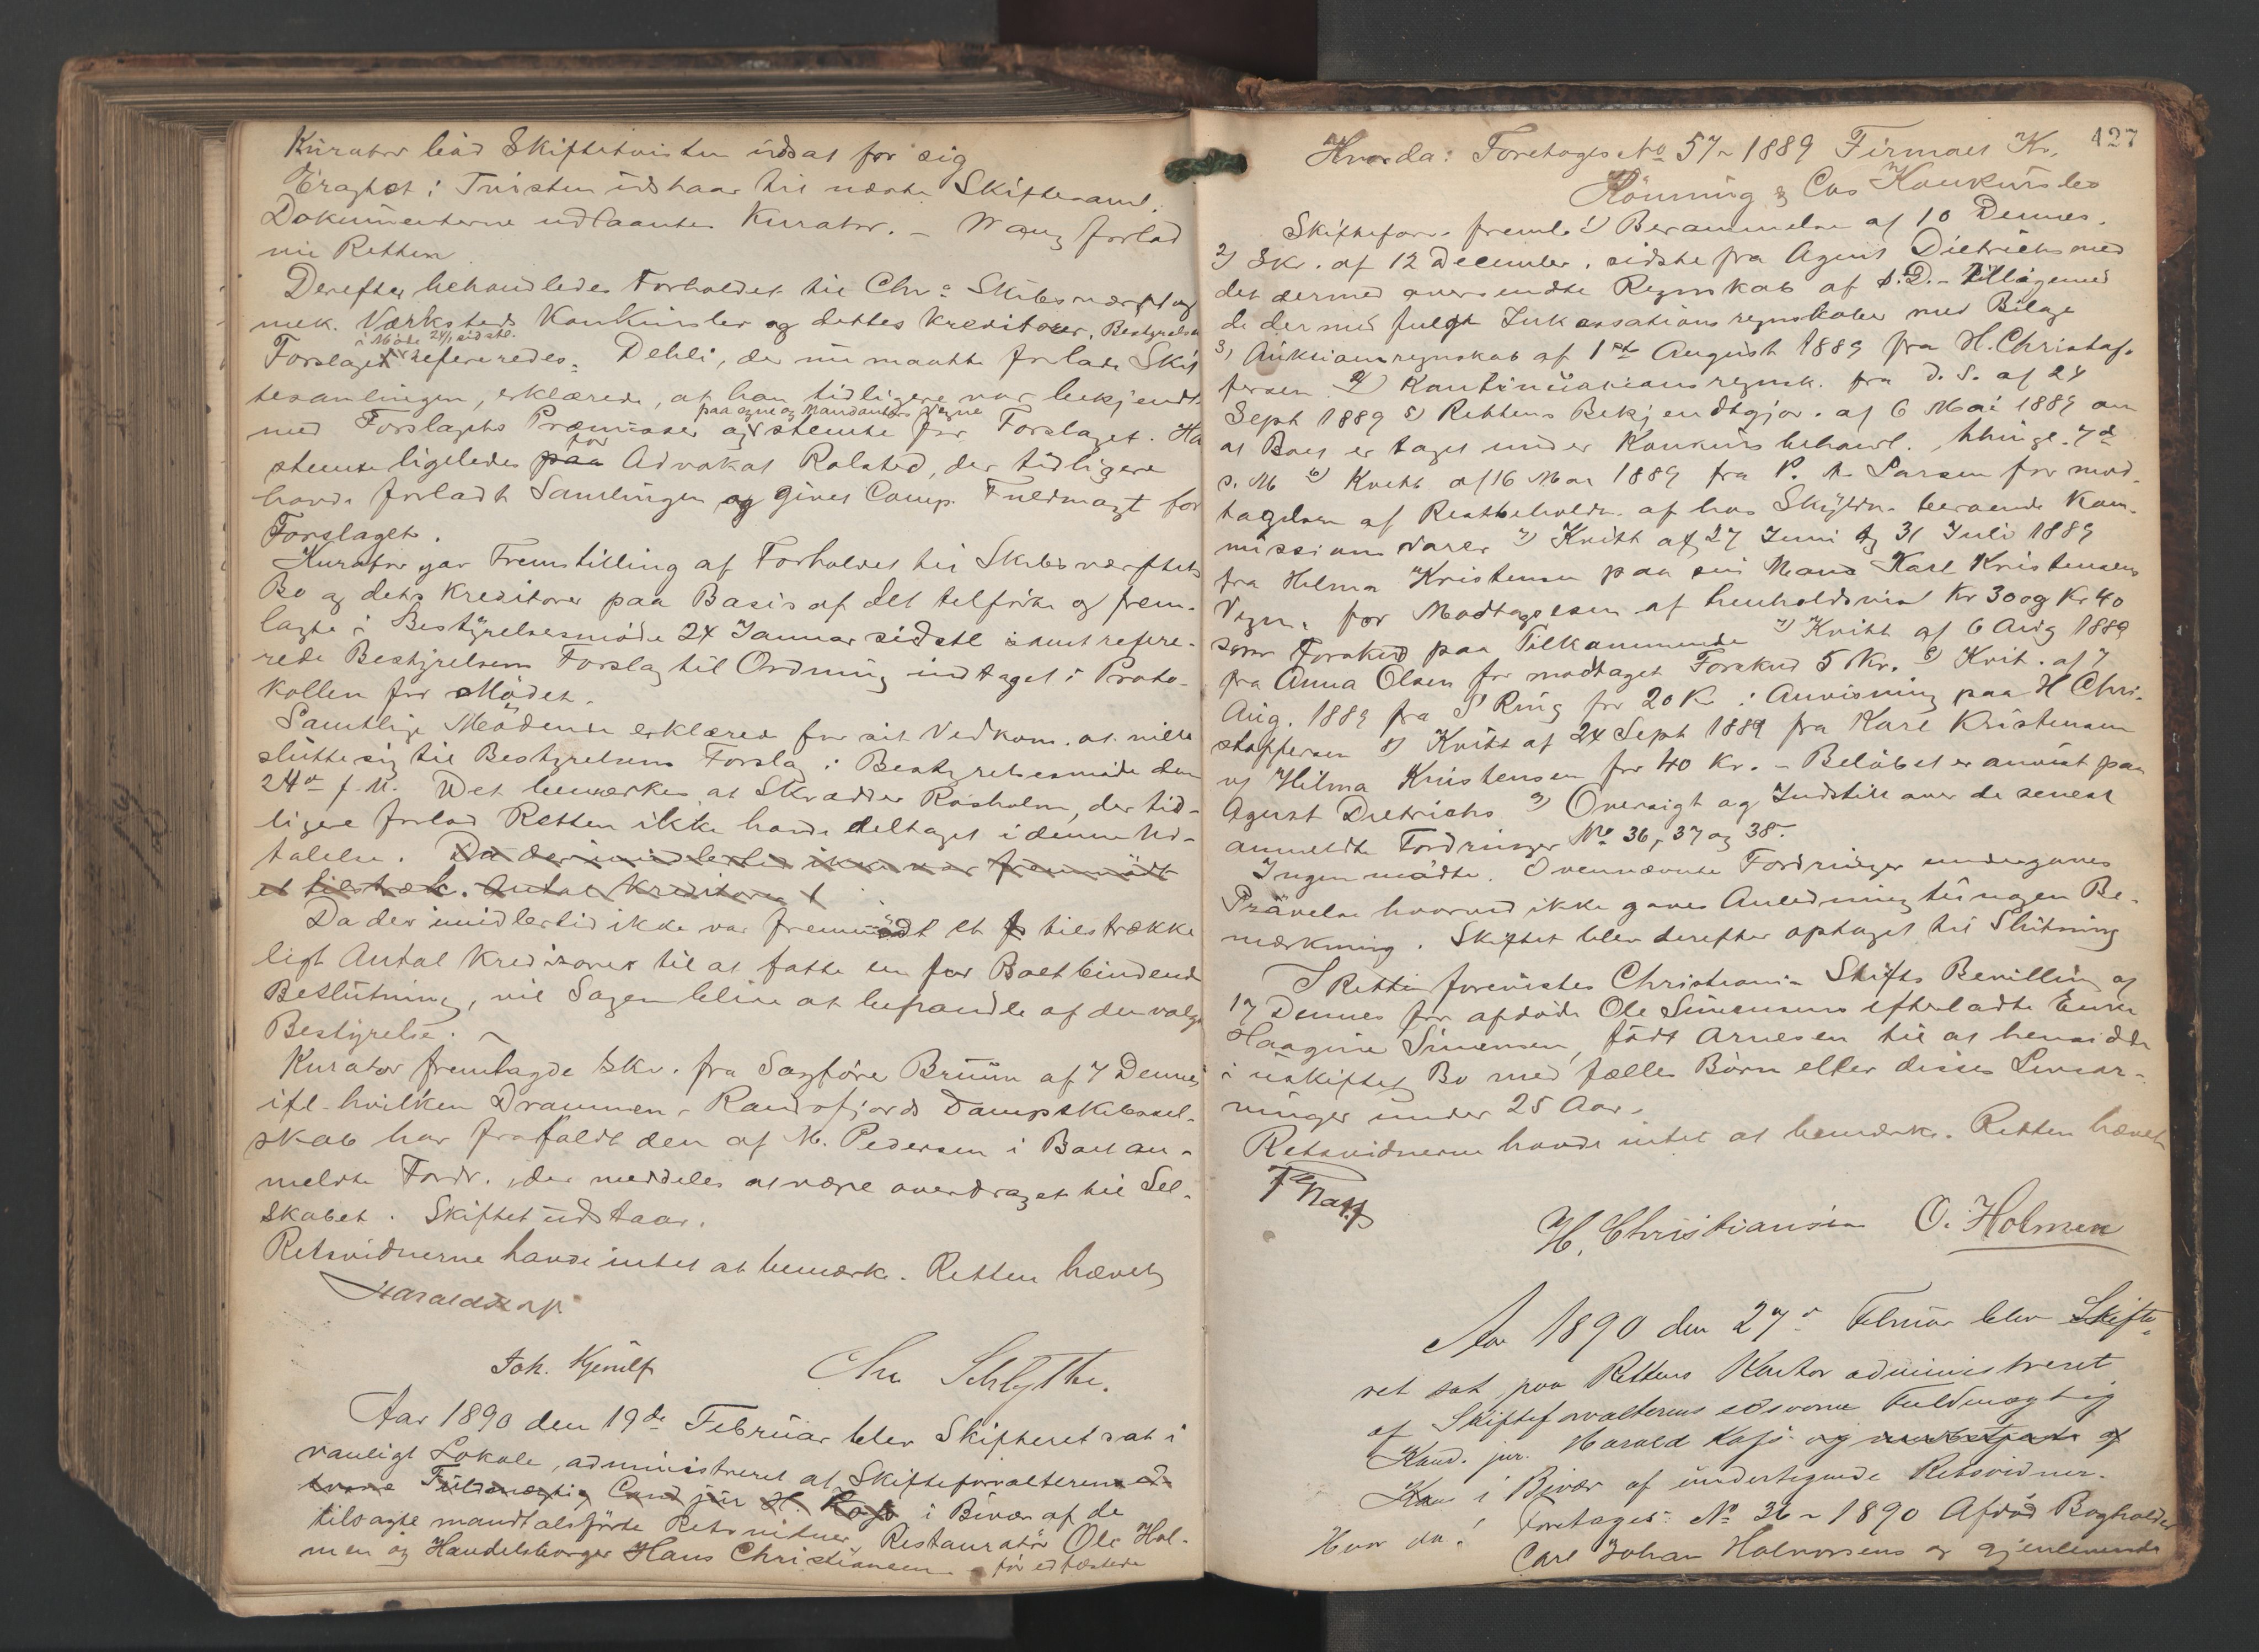 Kurator bad Skiftetvisten udsat for sig
Eragtet: Tvisten udstaar til næste Skiftesaml.
Dokumenterne udlaantes Kurator. - Wang forlod
nu Retten
Derefter behandledes Forholdet til Chr.a Skibsværft og
mek. Værksteds Konkursbo og dettes Kreditorer, Bestyrelsens
i Møde 24/1 sidstl.
Forslaget refereredes. Dehli, der nu maatte forlade Skif
tesamlingen, erklærede, at han tidligere var bekjendt
paa egne og Mandanters Vegne
med Forslagets Præmisser og stemte for Forslaget. Ha
for
stemte ligeledes paa Advokat Rolsted, der tidligere
havde forladt Samlingen og givet Comp. Fuldmagt for
Forslaget.
Kurator gav Fremstilling af Forholdet til Skibsværftets
Bo og dets Kreditorer paa Basis af det tilførte og frem-
lagte i Bestyrelsesmøde 24 Januar sidstl samt refere-
rede Bestyrelsens Forslag til Ordning indtaget i Proto-
kollen for Mødet.
Samtlige Mødende erklæred for sit Vedkom. at ville
slutte sig til Bestyrelsens Forslag i Bestyrelsesmøde den
24de f. M. Det bemærkes at Skrædder Rosholm, der tid-
ligere forlod Retten ikke havde deltaget i denne Ud-
talelse. Da der imidlertid ikke var fremmødt
et tilstræk. Antal Kreditorer t
Da der imidlertid ikke var fremmødt et tilstrække
ligt Antal Kreditorer til at fatte en for Boet bindende
Beslutning, vil Sagen blive at behandle af den valgte
Bestyrelse.
Kurator fremlagde Skr. fra Sagfører Bruun af 7 Dennes
ifl. hvilken Drammen-Randsfjords Dampskibssel-
skab har frafaldt den af M. Pedersen i Boet an-
meldte Fordr., der meddeles at være overdraget til Sel-
skabet. Skiftet udstaar.
Retsvidnerne havde intet at bemærke. Retten hævet
Harald Kaji
Joh. Kjerulf
Chr Schlytter.
Aar 1890 den 19de Februar blev Skifteret sat i
vanligt Lokale, administreret af Skifteforvalteren ed-
svorne Fuldmægtig Cand jur H. Kaji i Bivær af de
tilsagte mandtalsførte Retsvidner, Restauratør Ole Hol-
men og Handelsborger Hans Christiansen - før edfæstede
127
Hvorda: Foretoges No 57-1889 Firmaet Kr.
Hönning & Cos Konkursbo
Skifteforv. freml. 1) Berammelse af 10 Dennes.
2) Skr. af 12 December. sidste fra Agent Dietrichs med
det dermed oversendte Regnskab af s.D. - Tilligemed
de dermed fulgte Inkassationsregnskaber med Bilage
3) Auktionsregnskab af 1ste August 1889 fra H. Christof-
fersen 4) Kontinuationsregnsk. fra d. S. af 24
Sept 1889 5) Rettens Bekjendtgjør. af 6 Mai 1889 om
at Boet er taget under Konkursbehandl. thingl. 7de
s. M 6) Kvitt af 16 Mai 1889 fra P. A. Larsen for mod-
tagelsen af Restbeholdn. af hos Skyldn. beroende Kom-
missionsvarer 7) Kvitt af 27 Juni og 31 Juli 1889
fra Hilma Kristensen paa sin Mand Karl Kristensens
Vegn. for Modtagelsen af henholdsvis Kr 30 og Kr 40
som Forskud paa Tilkommende 7) Kvitt af 6 Aug 1889
fra Anna Olsen for modtaget Forskud 5 Kr. 8) Kvit. af 7
Aug. 1889 fra S Ring for 20 K i Anvisning paa H Chri-
stoffersen 8) Kvitt af 24 Sept 1889 fra Karl Kristensen
v/ Hilma Kristensen for 40 Kr. - Beløbet er anvist paa
Agent Dietrichs 9) Oversigt og Indstill over de senest
anmeldte Fordringer No 36, 37 og 38.
Ingen mødte. Ovennævnte Fordringer undergaves
Prøvelse hvorved ikke gaves Anledning til nogen Be-
mærkning. Skiftet blev derefter optaget til Slutning
I Retten forevistes Christiania Stifts Bevilling af
17 Dennes for afdøde Ole Simensens efterladte Enke
Haagine Simensen, født Arnesen til at hensidde
i uskiftet Bo med fælles Børn eller disses Livsar-
vinger under 25 Aar.
Retsvidnerne havde intet at bemærke. Retten hævet
H. Christiansen O. Holmen
Aar 1890 den 27de Februar blev Skifte-
ret sat paa Rettens Kontor administreret
af Skifteforvalterens edsvorne Fuldmægtig
Kand. jur. Harald Kaji og
i Bivær af undertegnede Retsvidner.
Hvor da: Foretages: No 36-1890 Afdød Bogholder
Carl Johan Halvorsens og gjenlevende